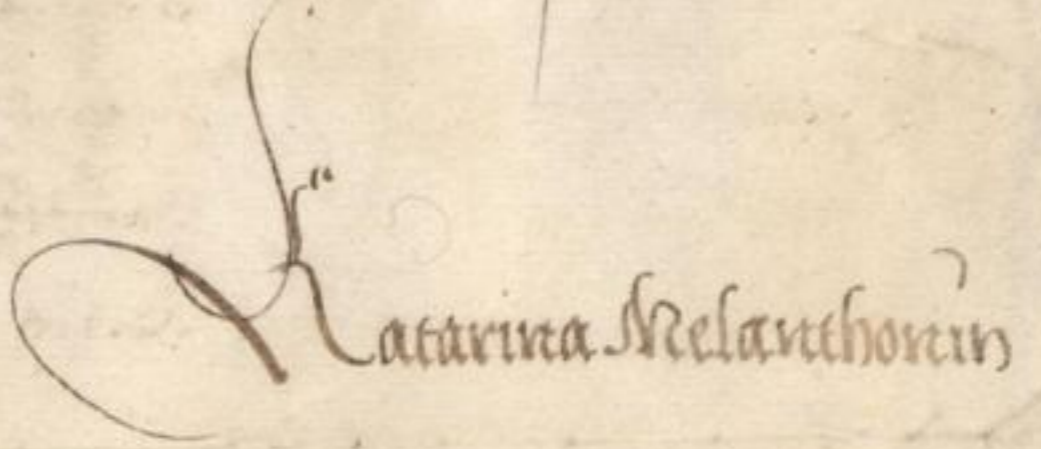 Katarina Melanthonin